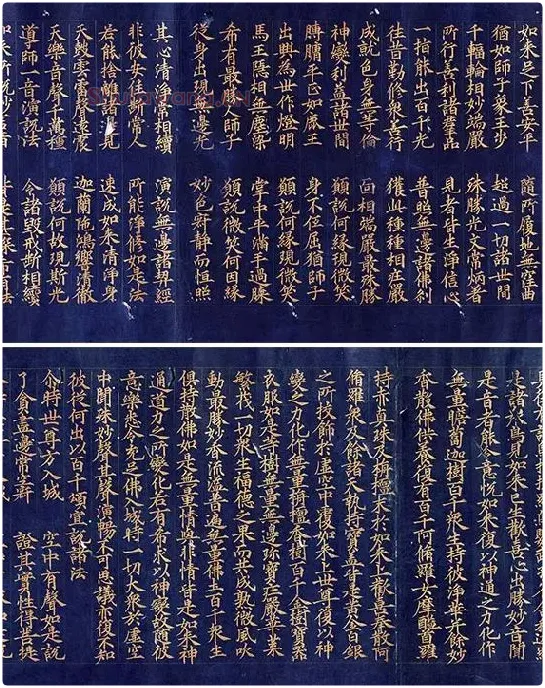 如來足下善安平 隨所履地無窪曲
猶如師子象王步 超過一切諸世間
千輻輪相妙端嚴 殊勝光文常炳著
所行善利諸羣品 見者皆生淨信心
一指能出百千光 普照無邊諸佛刹
往昔勤修衆善行 獲此種種相莊嚴
成就色身無等倫 面相端嚴最殊勝
神變利益諸世間 願說何緣現微笑
牢正如鹿王 身不低屈猶師子
出興為世作燈明 願說何緣現微笑
馬王隱相無塵染 掌中平滿手過膝
希有最勝人師子 願說微笑何因緣
從身出現無邊光 妙色寂靜而恒照
其心清淨常相續 演說無邊諸契經
非彼安住斯常人 所能淨修如是法
若能捨離諸邊見 速成如來清淨身
天鼓雲雷聲遠震 迦蘭陁鳩響清徹
天樂音聲千萬種 願說何故現斯光
導師一音演說法 令諸毀戒斷相續
是諸衆鳥見如來已生歡喜心出勝妙音聞
是音者能令意悅如來復以神通之力化作
無量瞻蔔迦樹百千衆生持彼淨華并餘妙
香散佛供養復有百千阿脩羅女摩醯首羅
持赤真珠及栴檀末於如來上歡喜奉散阿
脩羅衆及餘諸天執持寶蓋皆是黃金白銀
之所挍飾於虛空中覆如來上世尊復以神
變之力化作無量栴檀香樹百千金樹寶器
衣服如是等樹無量無邊珎寶莊嚴華菓
繁茂一切衆生福德之果而共成熟微風吹
動最勝妙香流溢普遍無量佛土百千衆生
俱持散佛如是無量情與非情皆是如來神
通道力之所變化若有希求以神變故隨彼
意樂悉令充足佛入城時一切大衆於虛空
中聞殊妙聲其聲演暢不可思議亦復不知
彼從何出以百千頌宣說諸法
尒時世尊方入城 空中有聲如是說
了貪無邊常空寂 證其實性得菩提